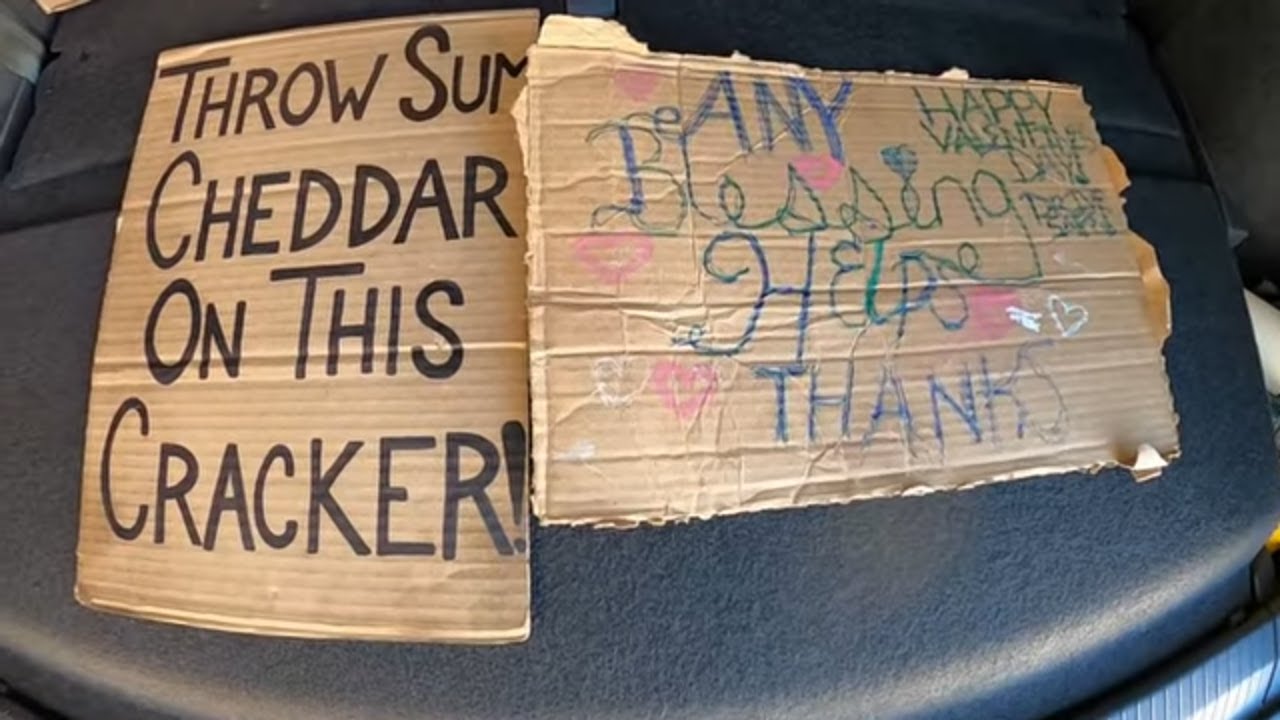 THROW SUM
CHEDDAR
ON THIS
CRACKER!
ANY
Blessing
HELPS
THANKS
HAPPY
VALENTINES
DAY